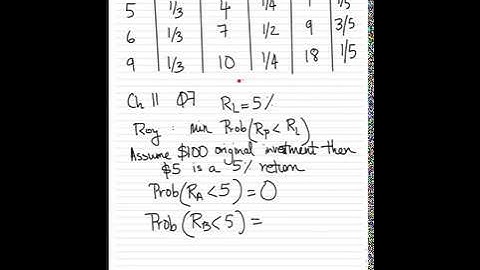 5 1/3 4 1/4 1/5
6 1/3 7 1/2 9 3/5
9 1/3 10 1/4 18 1/5
Ch 11 Q7 RL = 5%
Roy : min Prob(RP < RL)
Assume $100 original investment then
$5 is a 5% return
Prob(RA < 5) = 0
Prob(RB < 5) =